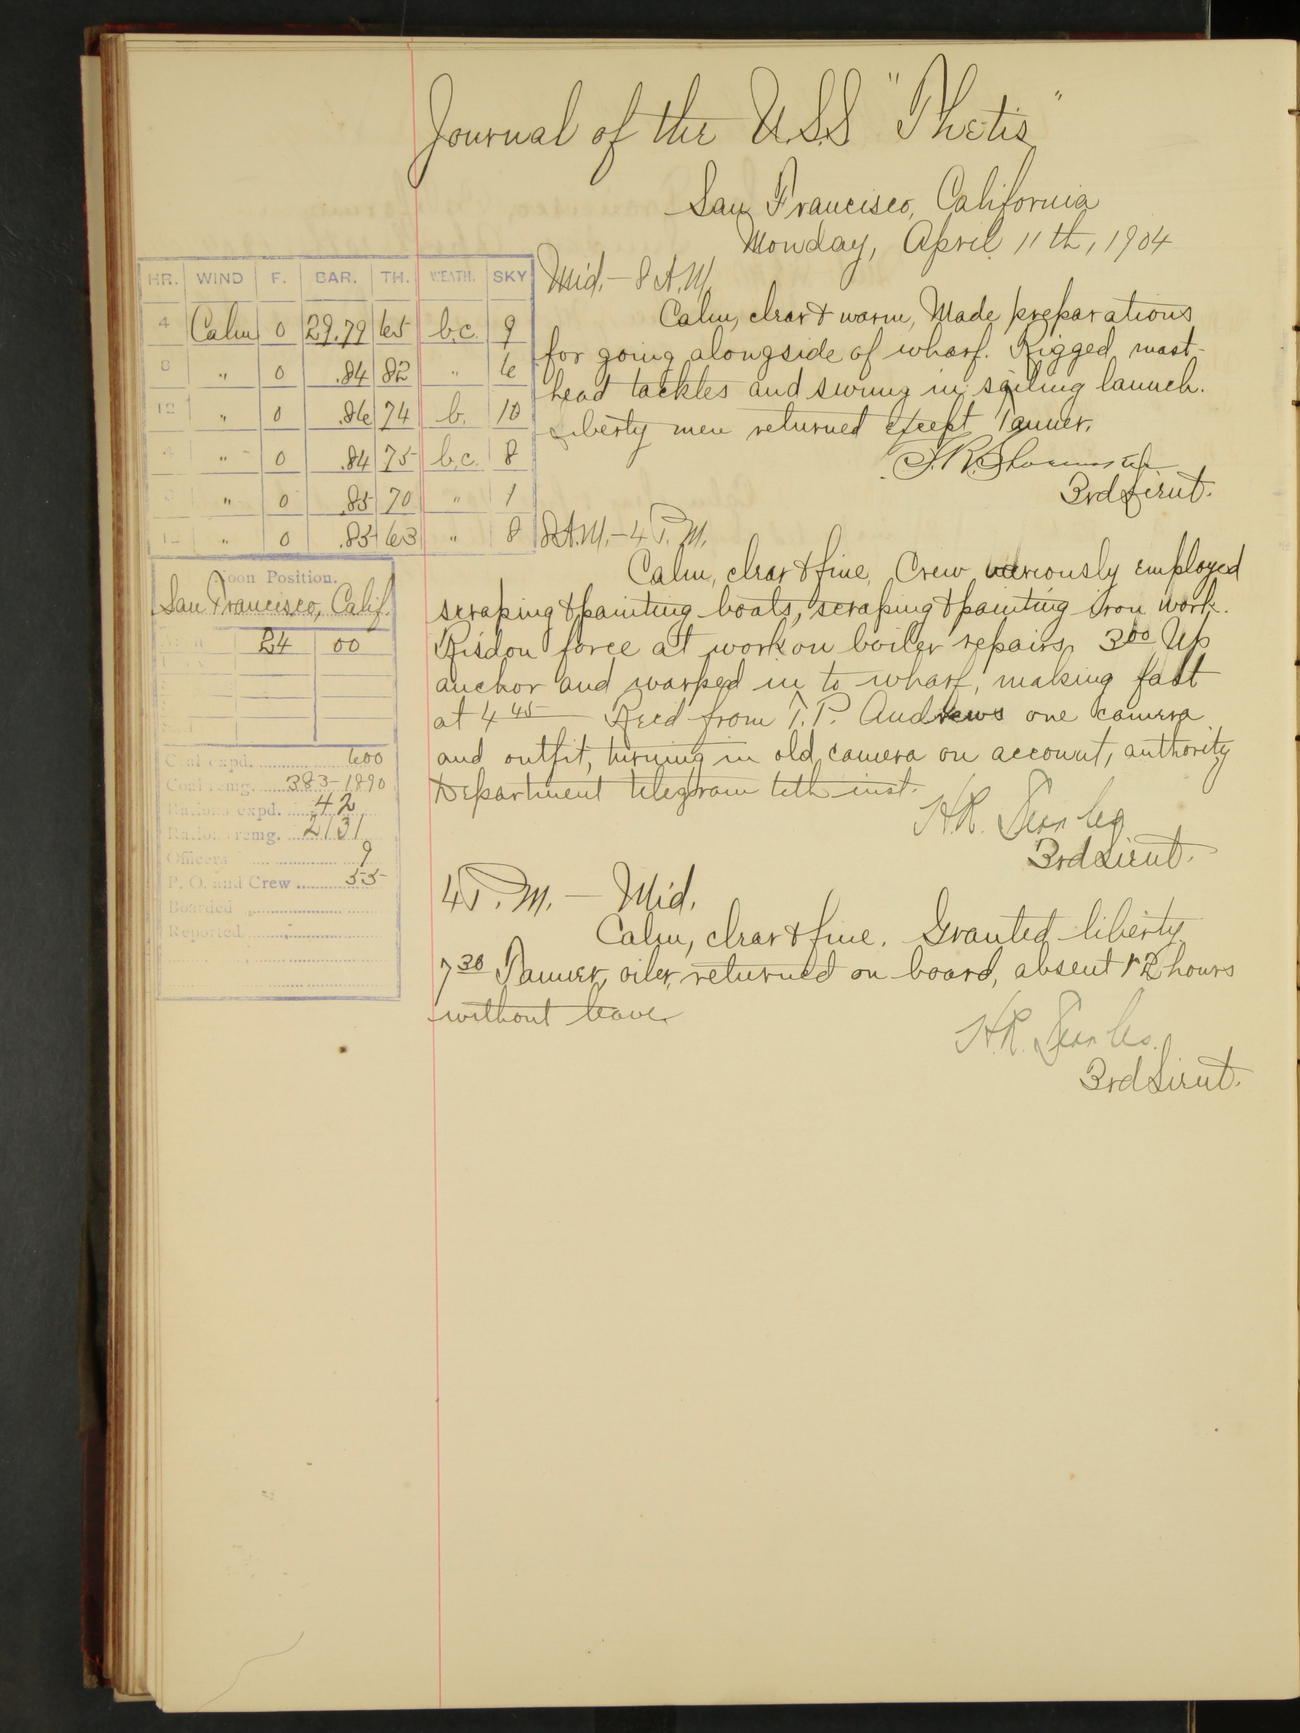 Journal of the U.S.S "Thetis"
San Francisco, California
Monday, April 11th, 1904
HR. WIND F. BAR. TH. WEATH. SKY
4 Calm 0 29.79 65 b.c. 9
8 " 0 .84 82 " 6
12 " 0 .86 74 b. 10
4 " 0 .84 75 b.c. 8
" 0 .85 70 " 1
12 " 0 .85 63 " 8
Noon Position.
San Francisco, Calif.
24 00
Coal expd. 600
Coal remg. 383-1890
Rations expd. 42
Rations remg. 2131
Officers 9
P. O. and Crew 55
Boarded
Reported
Mid. - 8 A.M.
Calm, clear & warm, Made preparations
for going alongside of wharf. Rigged mast-
head tackles and swung in sailing launch.
Liberty men returned except Tanner.
3rd Lieut.
8 A.M. - 4 P.M.
Calm, clear & fine, Crew variously employed
scraping & painting boats, scraping & painting iron work.
Risdon force at work on boiler repairs. 3 00 Up
anchor and warped in to wharf, making fast
at 4 45 Recd from T. P. Andrews one camera
and outfit, turning in old camera on account, authority
Department telegram 6th inst.
H.R. Searles
3rd Lieut.
4 P.M. - Mid.
Calm, clear & fine. Granted liberty
7 30 Tanner, oiler, returned on board, absent 12 hours
without leave
H.R. Searles.
3rd Lieut.